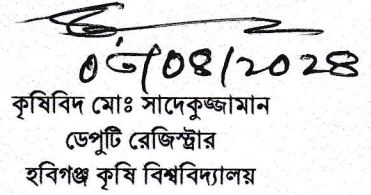 কৃষিবিদ মোঃ সাদেকুজ্জামান
ডেপুটি রেজিস্ট্রার
হবিগঞ্জ কৃষি বিশ্ববিদ্যালয়